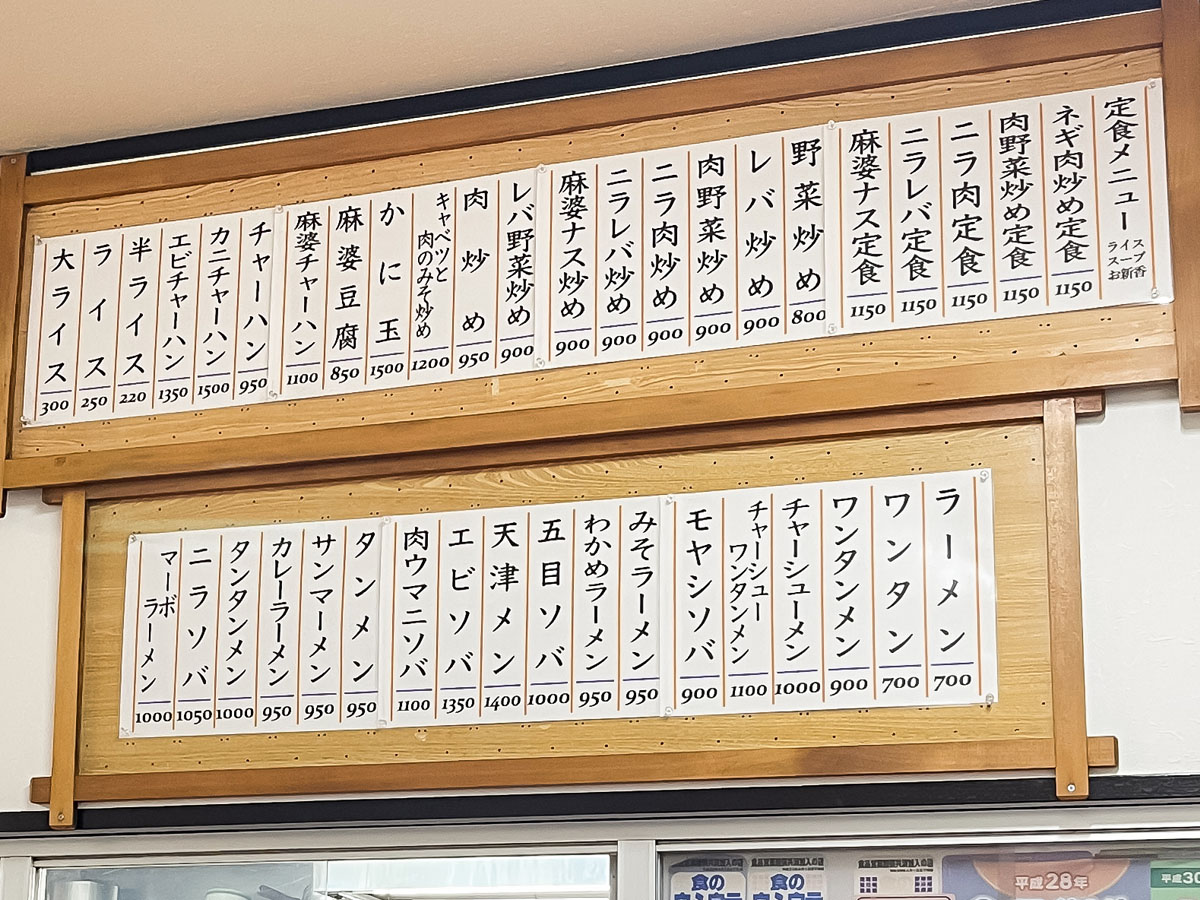 定食メニュー
ライス
スープ
お新香
ネギ肉炒め定食
1150
肉野菜炒め定食
1150
ニラ肉定食
1150
ニラレバ定食
1150
麻婆ナス定食
1150
野菜炒め
800
レバ炒め
900
肉野菜炒め
900
ニラ肉炒め
900
ニラレバ炒め
900
麻婆ナス炒め
900
レバ野菜炒め
900
肉炒め
950
キャベツと
肉のみそ炒め
1200
かに玉
1500
麻婆豆腐
850
麻婆チャーハン
1100
チャーハン
950
カニチャーハン
1500
エビチャーハン
1350
半ライス
220
ライス
250
大ライス
300
ラーメン
700
ワンタン
700
ワンタンメン
900
チャーシューメン
1000
チャーシュー
ワンタンメン
1100
モヤシソバ
900
みそラーメン
950
わかめラーメン
950
五目ソバ
1000
天津メン
1400
エビソバ
1350
肉ウマニソバ
1100
タンメン
950
サンマーメン
950
カレーラーメン
950
タンタンメン
1000
ニラソバ
1050
マーボ
ラーメン
1000
食の
食の
平成28年
平成30